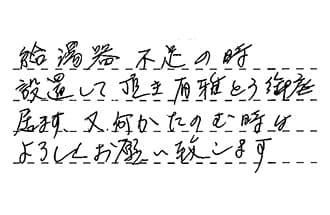 給湯器不足の時
設置して頂き有難とう御座
居ます、又何かたのむ時は
よろしくお願い致します